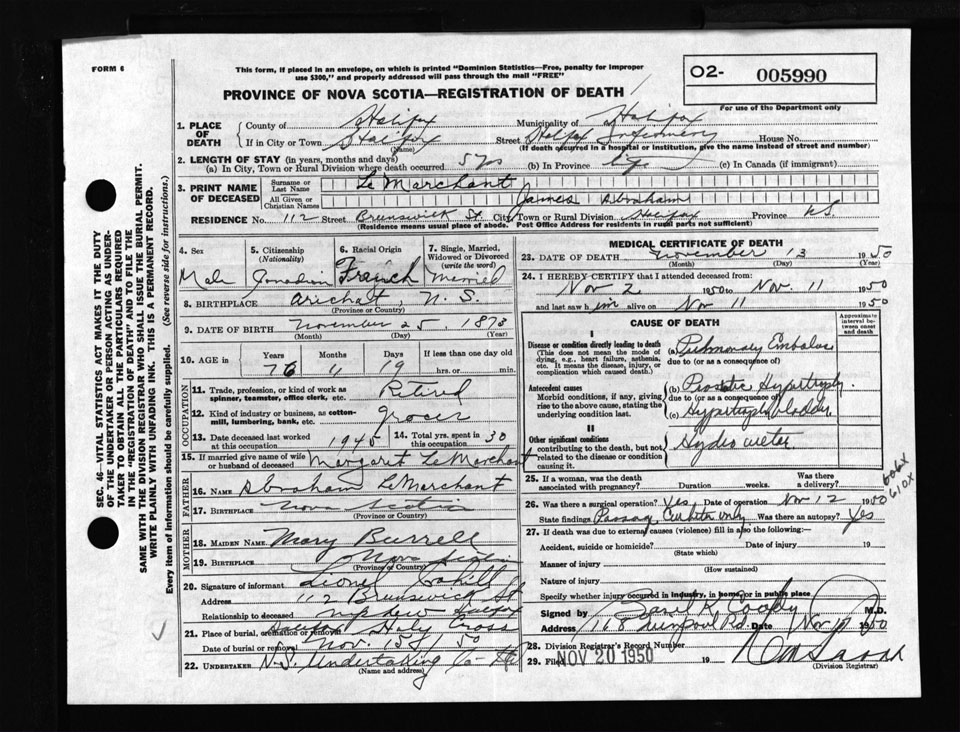 FORM 6
This form, if placed in an envelope, on which is printed "Dominion Statistics—Free, penalty for improper
use $300," and properly addressed will pass through the mail "FREE"
O2- 005990
For use of the Department only
PROVINCE OF NOVA SCOTIA—REGISTRATION OF DEATH
1. PLACE OF DEATH
County of Halifax Municipality of Halifax
If in City or Town Halifax Street Halifax Infirmary House No.
(Name) (If death occurred in a hospital or institution, give the name instead of street and number)
2. LENGTH OF STAY (in years, months and days)
(a) In City, Town or Rural Division where death occurred 5 yrs (b) In Province life (c) In Canada (if immigrant)
3. PRINT NAME OF DECEASED
Surname or Last Name Le Marchant
All Given or Christian Names James Abraham
RESIDENCE No. 112 Street Brunswick St. City, Town or Rural Division Halifax Province N.S.
(Residence means usual place of abode. Post Office Address for residents in rural parts not sufficient)
4. Sex Male
5. Citizenship (Nationality) Canadian
6. Racial Origin French
7. Single, Married, Widowed or Divorced (write the word) Married
8. BIRTHPLACE Arichat, N.S.
(Province or Country)
9. DATE OF BIRTH November 25, 1873
(Month) (Day) (Year)
10. AGE Years 76 Months 11 Days 9 If less than one day old
hrs. or min.
OCCUPATION
11. Trade, profession, or kind of work as spinner, teamster, office clerk, etc. Retired
12. Kind of industry or business, as cotton-mill, lumbering, bank, etc. grocer
13. Date deceased last worked at this occupation 1945 14. Total yrs. spent in this occupation 30
15. If married give name of wife or husband of deceased Margaret Le Marchant
FATHER
16. NAME Abraham Le Marchant
17. BIRTHPLACE Nova Scotia
(Province or Country)
MOTHER
18. MAIDEN NAME Mary Burrell
19. BIRTHPLACE Nova Scotia
(Province or Country)
20. Signature of informant Lionel Cahill
Address 112 Brunswick St
Relationship to deceased nephew Halifax
21. Place of burial, cremation or removal Halifax Holy Cross
Date of burial or removal Nov. 15, 1950
22. UNDERTAKER N.S. Undertaking Co
(Name and address)
MEDICAL CERTIFICATE OF DEATH
23. DATE OF DEATH November 13 1950
(Month) (Day)
24. I HEREBY CERTIFY that I attended deceased from
Nov 2 1950 to Nov. 11 1950
and last saw him alive on Nov 11 1950
CAUSE OF DEATH
Approximate interval between onset and death
I
Disease or condition directly leading to death
(This does not mean the mode of dying, e.g., heart failure, asthenia, etc. It means the disease, injury, or complication which caused death.)
(a) Pulmonary Embolus
due to (or as a consequence of)
Antecedent causes
Morbid conditions, if any, giving rise to the above cause, stating the underlying condition last.
(b) Prostatic Hypertrophy
due to (or as a consequence of)
(c) Hypertroph bladder
II
Other significant conditions
contributing to the death, but not related to the disease or condition causing it.
Hydro ureter
25. If a woman, was the death associated with pregnancy? Duration weeks. Was there a delivery?
26. Was there a surgical operation? Yes Date of operation Nov 12 1950
State findings only Was there an autopsy? Yes
610X
27. If death was due to external causes (violence) fill in also the following:—
Accident, suicide or homicide? Date of injury 19
(State which)
Manner of injury
(How sustained)
Nature of injury
Specify whether injury occurred in industry, in home or in public place
Signed by Basil K. M.D.
Address 168 Date Nov 1950
28. Division Registrar's Record Number
29. Filed NOV 20 1950 19
(Division Registrar)
SEC. 46—VITAL STATISTICS ACT MAKES IT THE DUTY
OF THE UNDERTAKER OR PERSON ACTING AS UNDER-
TAKER TO OBTAIN ALL THE PARTICULARS REQUIRED
IN THE "REGISTRATION OF DEATH" AND TO FILE THE
SAME WITH THE DIVISION REGISTRAR WHO SHALL ISSUE THE BURIAL PERMIT.
WRITE PLAINLY WITH UNFADING INK. THIS IS A PERMANENT RECORD.
Every item of information should be carefully supplied. (See reverse side for instructions.)